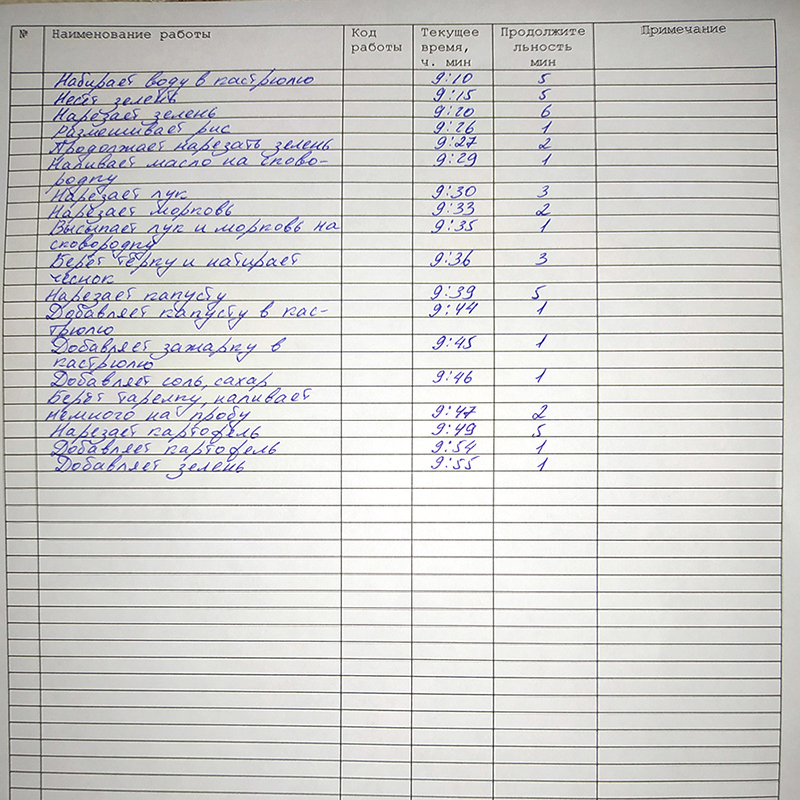 № Наименование работы Код работы Текущее время, ч. мин Продолжительность мин Примечание
Набирает воду в кастрюлю 9:10 5
Несёт зелень 9:15 5
Нарезает зелень 9:20 6
Размешивает рис 9:26 1
Продолжает нарезать зелень 9:27 2
Наливает масло на сково- 9:29 1
родку
Нарезает лук 9:30 3
Нарезает морковь 9:33 2
Высыпает лук и морковь на 9:35 1
сковородку
Берёт тёрку и натирает 9:36 3
чеснок
Нарезает капусту 9:39 5
Добавляет капусту в кас- 9:44 1
трюлю
Добавляет зажарку в 9:45 1
кастрюлю
Добавляет соль, сахар 9:46 1
Берёт тарелку, наливает
немного на пробу 9:47 2
Нарезает картофель 9:49 5
Добавляет картофель 9:54 1
Добавляет зелень 9:55 1